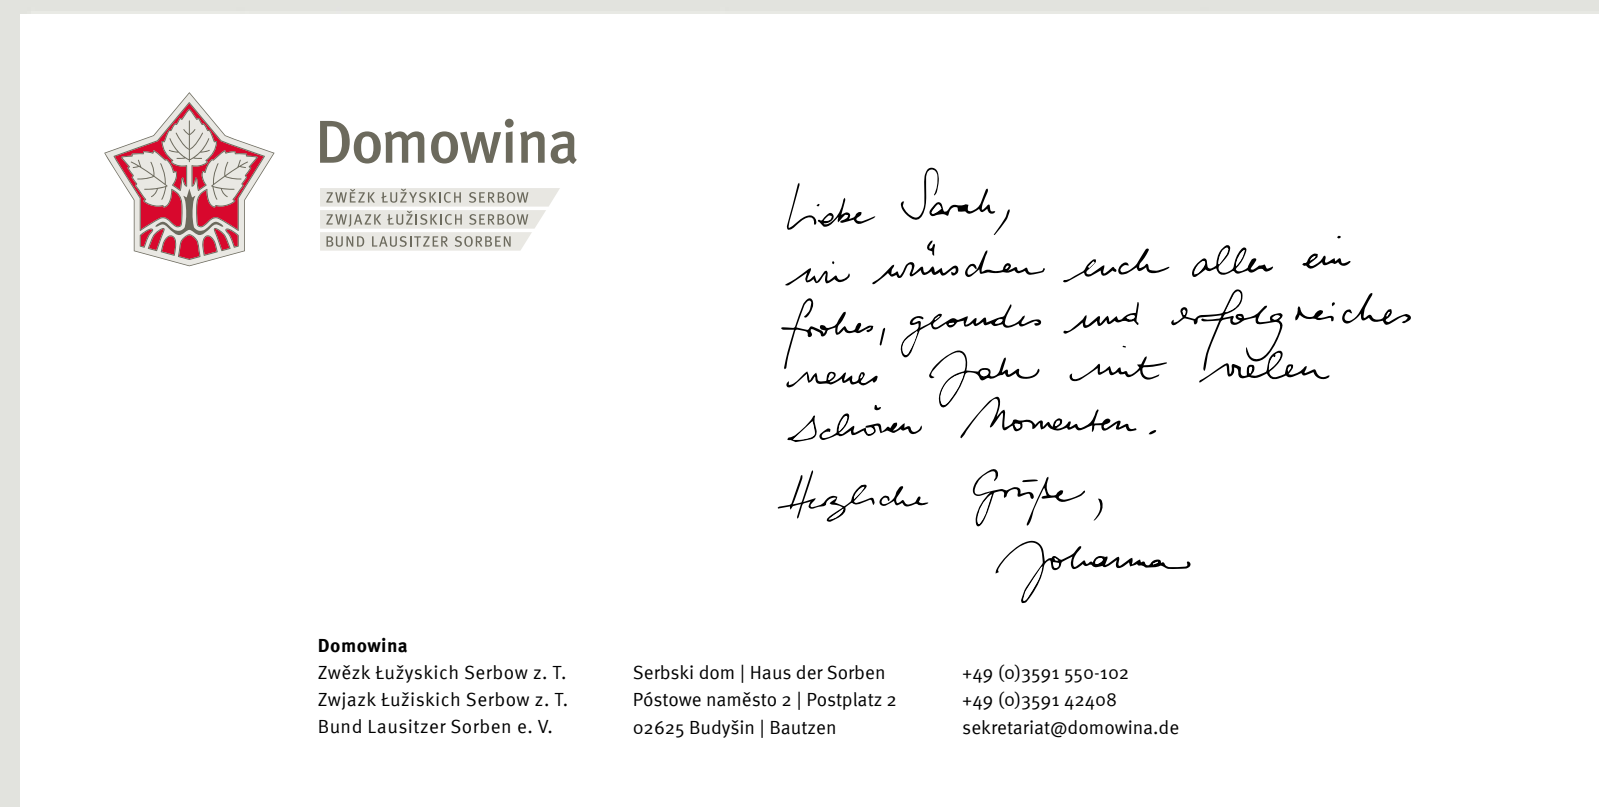 Domowina
ZWĚZK ŁUŽYSKICH SERBOW
ZWJAZK ŁUŽISKICH SERBOW
BUND LAUSITZER SORBEN
Liebe Sarah,
wir wünschen euch allen ein
frohes, gesundes und erfolgreiches
neues Jahr mit vielen
schönen Momenten.
Herzliche Grüße,
Johanna
Domowina
Zwězk Łužyskich Serbow z. T.
Zwjazk Łužiskich Serbow z. T.
Bund Lausitzer Sorben e. V.
Serbski dom | Haus der Sorben
Póstowe naměsto 2 | Postplatz 2
02625 Budyšin | Bautzen
+49 (0)3591 550-102
+49 (0)3591 42408
sekretariat@domowina.de